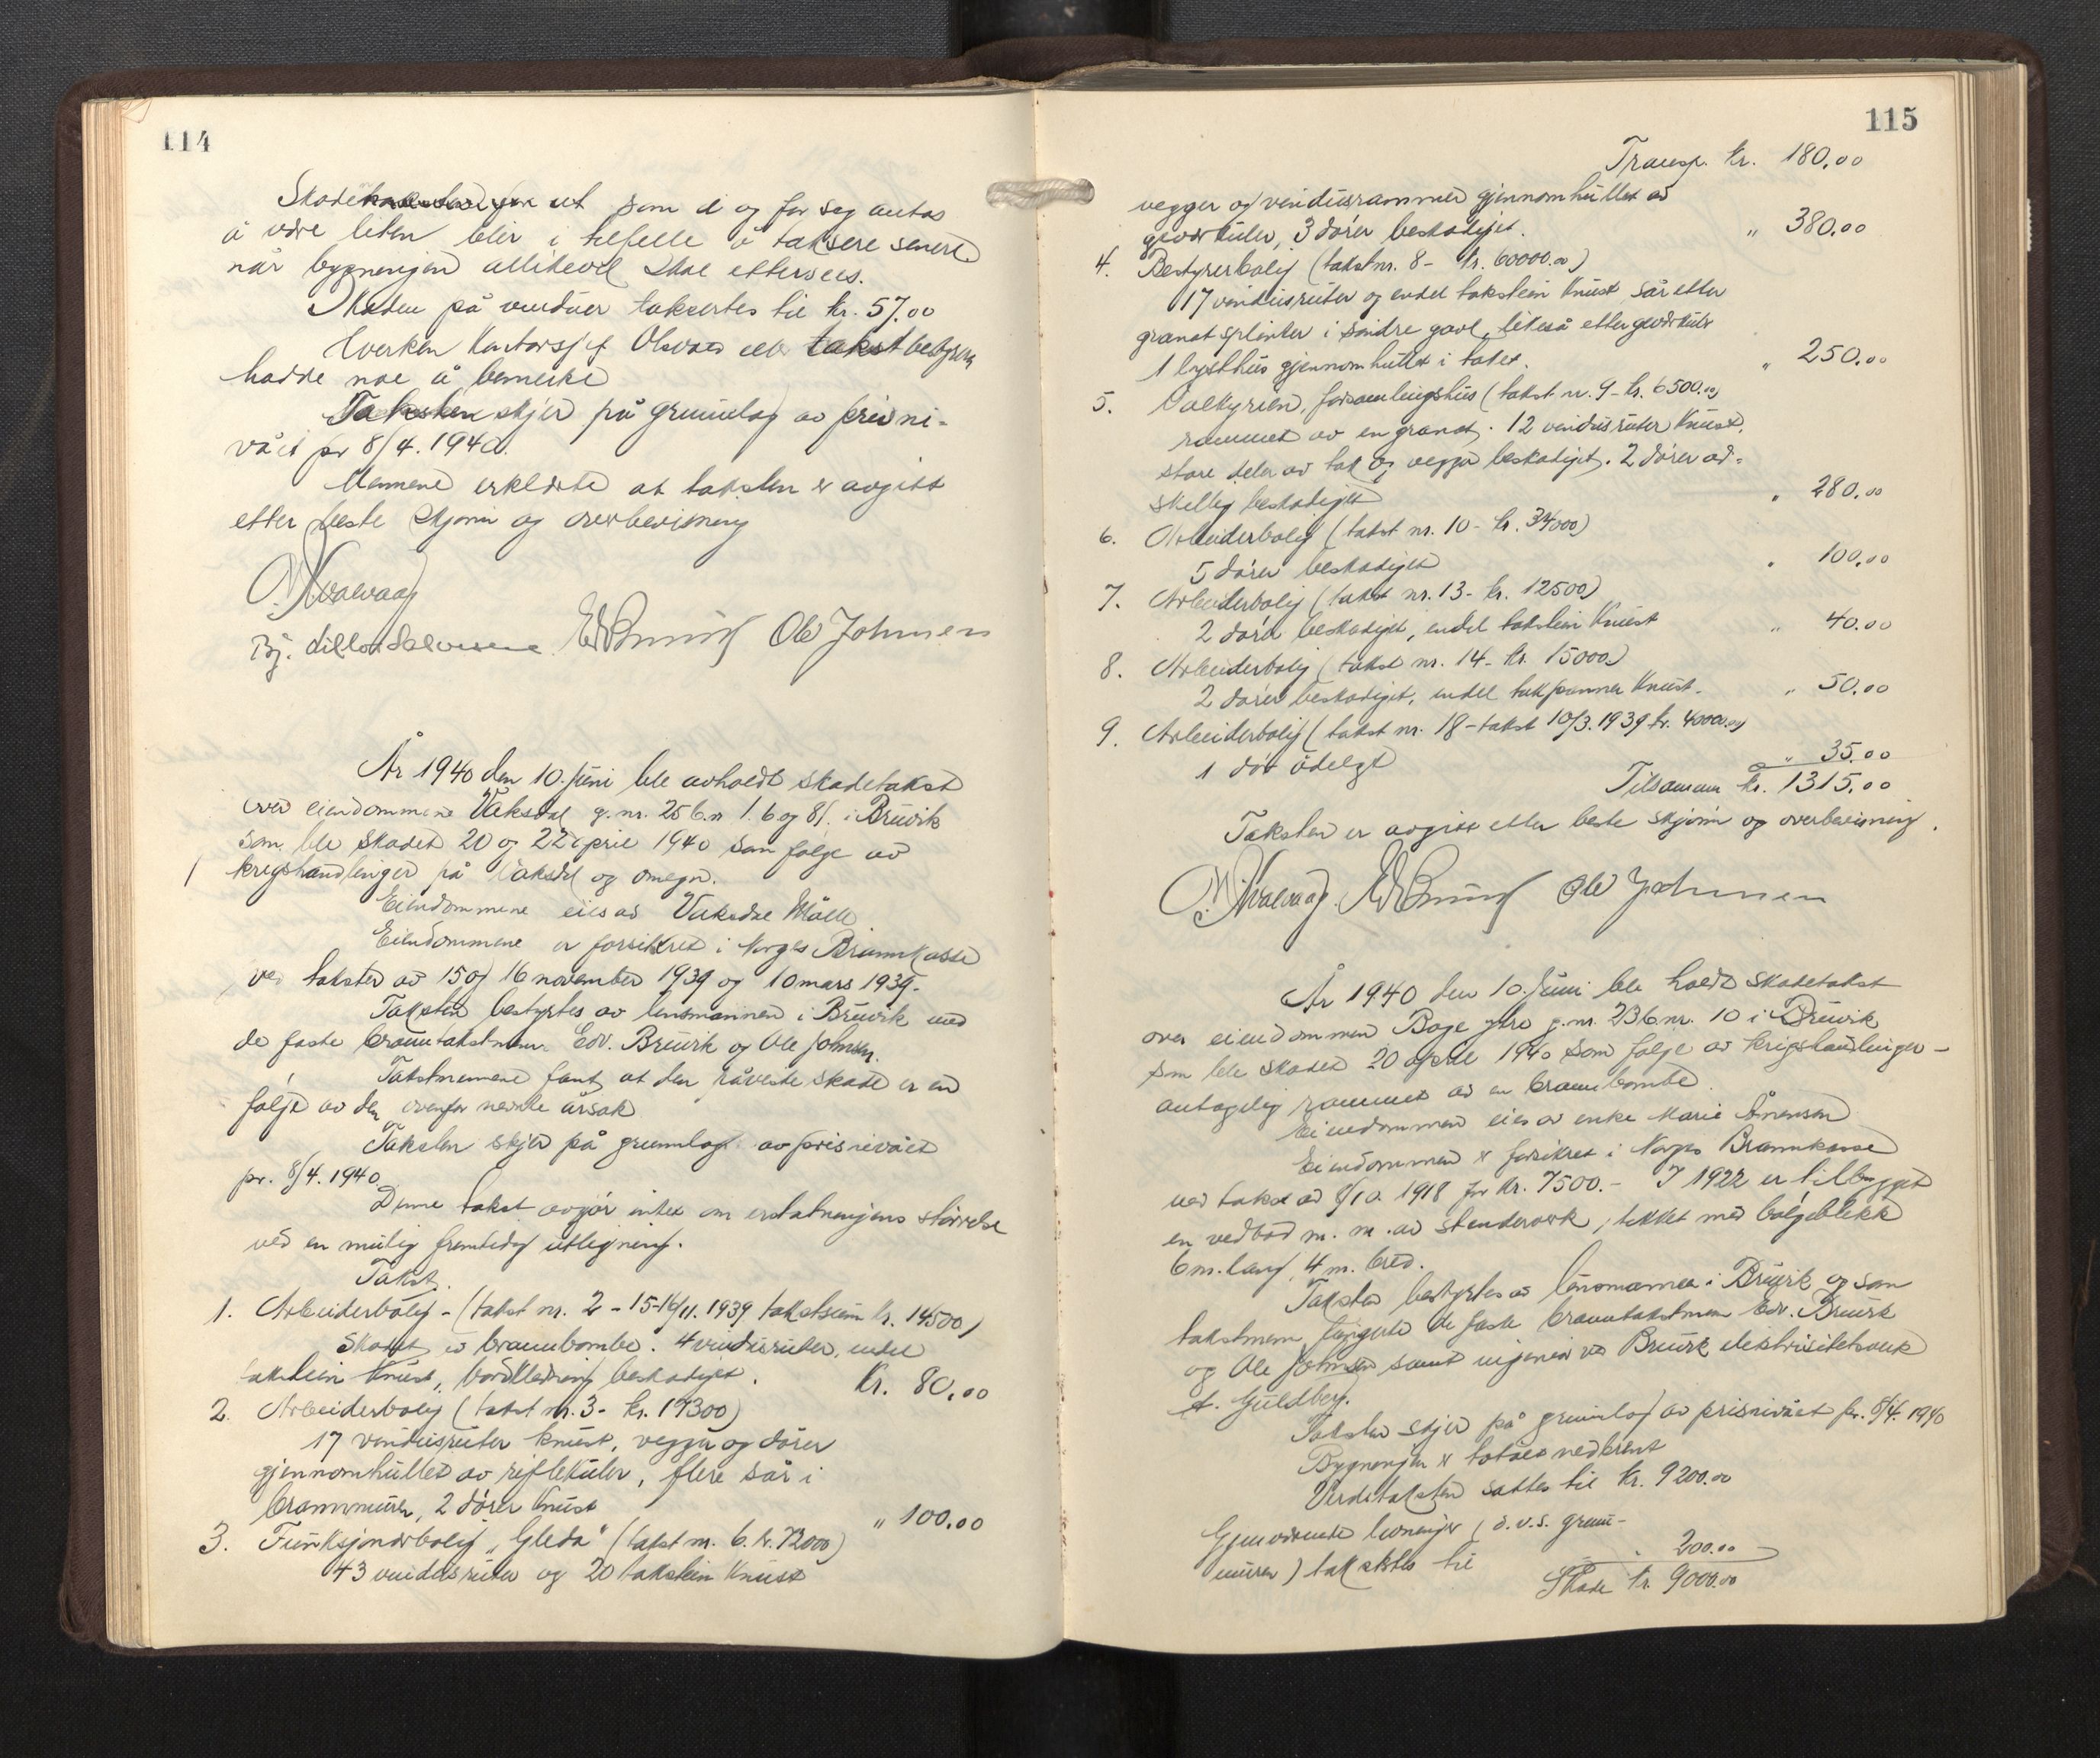 114
Skade ut som i og for seg antas
å være liten blir i tilfelle å taksere senere
når bygningen allikevel skal etterses.
Skaden på vinduer taksertes til kr. 57.00
Hverken Kontorsjef Olsvold eller takstbestyrer
hadde noe å bemerke
Taksten skjer på grunnlag av prisni-
våe pr 8/4. 1940.
Mennene erklærte at taksten er avgitt
etter beste skjønn og overbevisning
O. Kvalvaag
Ole Johnsen
År 1940 den 10. juni ble avholdt skadetakst
over eiendommene Vaksdal g.nr. 25 b.n 1. 6 og 81. i Bruvik
som ble skadet 20 og 22 april 1940 som følge av
krigshandlinger på Vaksdal og omegn.
Eiendommene eies av Vaksdal Mölle
Eiendommene er forsikret i Norges Brannkasse
ved takster av 15 og 16 november 1939 og 10 mars 1939.
Taksten bestyrtes av lensmannen i Bruvik med
de faste branntakstmenn Edv. Bruvik og Ole Johnsen.
Takstmennene fant at den påviste skade er en
følge av den ovenfor nevnte årsak
Taksten skjer på grunnlag av prisnivået
pr. 8/4. 1940.
Denne takst avgjør intet om erstatningens störrelse
ved en mulig fremtidig utligning.
Takst.
1. Arbeiderbolig - (takst nr. 2 - 15-16/11. 1939 takstsum kr. 14500)
Skadet av brannbombe. 4 vindusruter, endel
takstein knust, bordkledning beskadiget. Kr. 80.00
2. Arbeiderbolig (takst nr. 3 - kr. 17300)
17 vindusruter knust, vegger og dører
gjennomhullet av riflekuler, flere sår i
brannmuren, 2 dører knust " 100.00
3. Funksjonærbolig "Gleda" (takst nr. 6. kr. 72000)
43 vindusruter og 20 takstein knust
115
Transp. kr. 180.00
vegger og vindusrammer gjennomhullet av
geværkuler, 3 dører beskadiget. " 380.00
4. Bestyrerbolig (takst nr. 8 - kr. 60000.00)
17 vindusruter og endel takstein knust, sår etter
granatsplinter i söndre gavl, likeså etter geværkuler
1 lysthus gjennomhullet i taket. " 250.00
5. Valkyrien, forsamlingshus (takst nr. 9 - kr. 6500.00)
rammet av en granat. 12 vindusruter knust,
store deler av tak og vegger beskadiget. 2 dører ad-
skillig beskadiget " 280.00
6. Arbeiderbolig (takst nr. 10 - kr. 34000)
5 dører beskadiget " 100.00
7. Arbeiderbolig (takst nr. 13 - kr. 12500)
2 dører beskadiget, endel takstein knust " 40.00
8. Arbeiderbolig (takst nr. 14 - kr. 15000)
2 dører beskadiget, endel takpanner knust. " 50.00
9. Arbeiderbolig (takst nr. 18 - takst 10/3. 1939 kr. 40000.00)
1 dör ödelagt " 35.00
Tilsammen kr. 1315.00
Taksten er avgitt etter beste skjönn og overbevisning.
O. Kvalvaag. Ole Johnsen
År 1940 den 10. juni ble holdt skadetakst
over eiendommen Boge ytre g.nr. 23 b.nr. 10 i Bruvik
som ble skadet 20 april 1940 som følge av krigshandlinger -
antagelig rammet av en brannbombe.
Eiendommen eies av enke Marie Anensen
Eiendommen er forsikret i Norges Brannkasse
ved takst av 8/10. 1918 for kr. 7500.- I 1922 er tilbygget
en vedbod m. m. av stenderverk, tekket med bølgeblikk
6 m. lang, 4 m. bred.
Taksten bestyrtes av lensmannen i Bruvik og som
takstmenn fungerte de faste branntakstmenn Edv. Bruvik
og Ole Johnsen samt ingeniør ved Bruvik elektrisitetsverk
A. Guldberg.
Taksten skjer på grunnlag av prisnivået pr. 8/4. 1940
Bygningen er totalt nedbrent
Verditaksten sattes til kr. 9200.00
Gjenværende levninger (d.v.s. grunn-
muren) taksertes til " 200.00
Skade kr. 9000.00